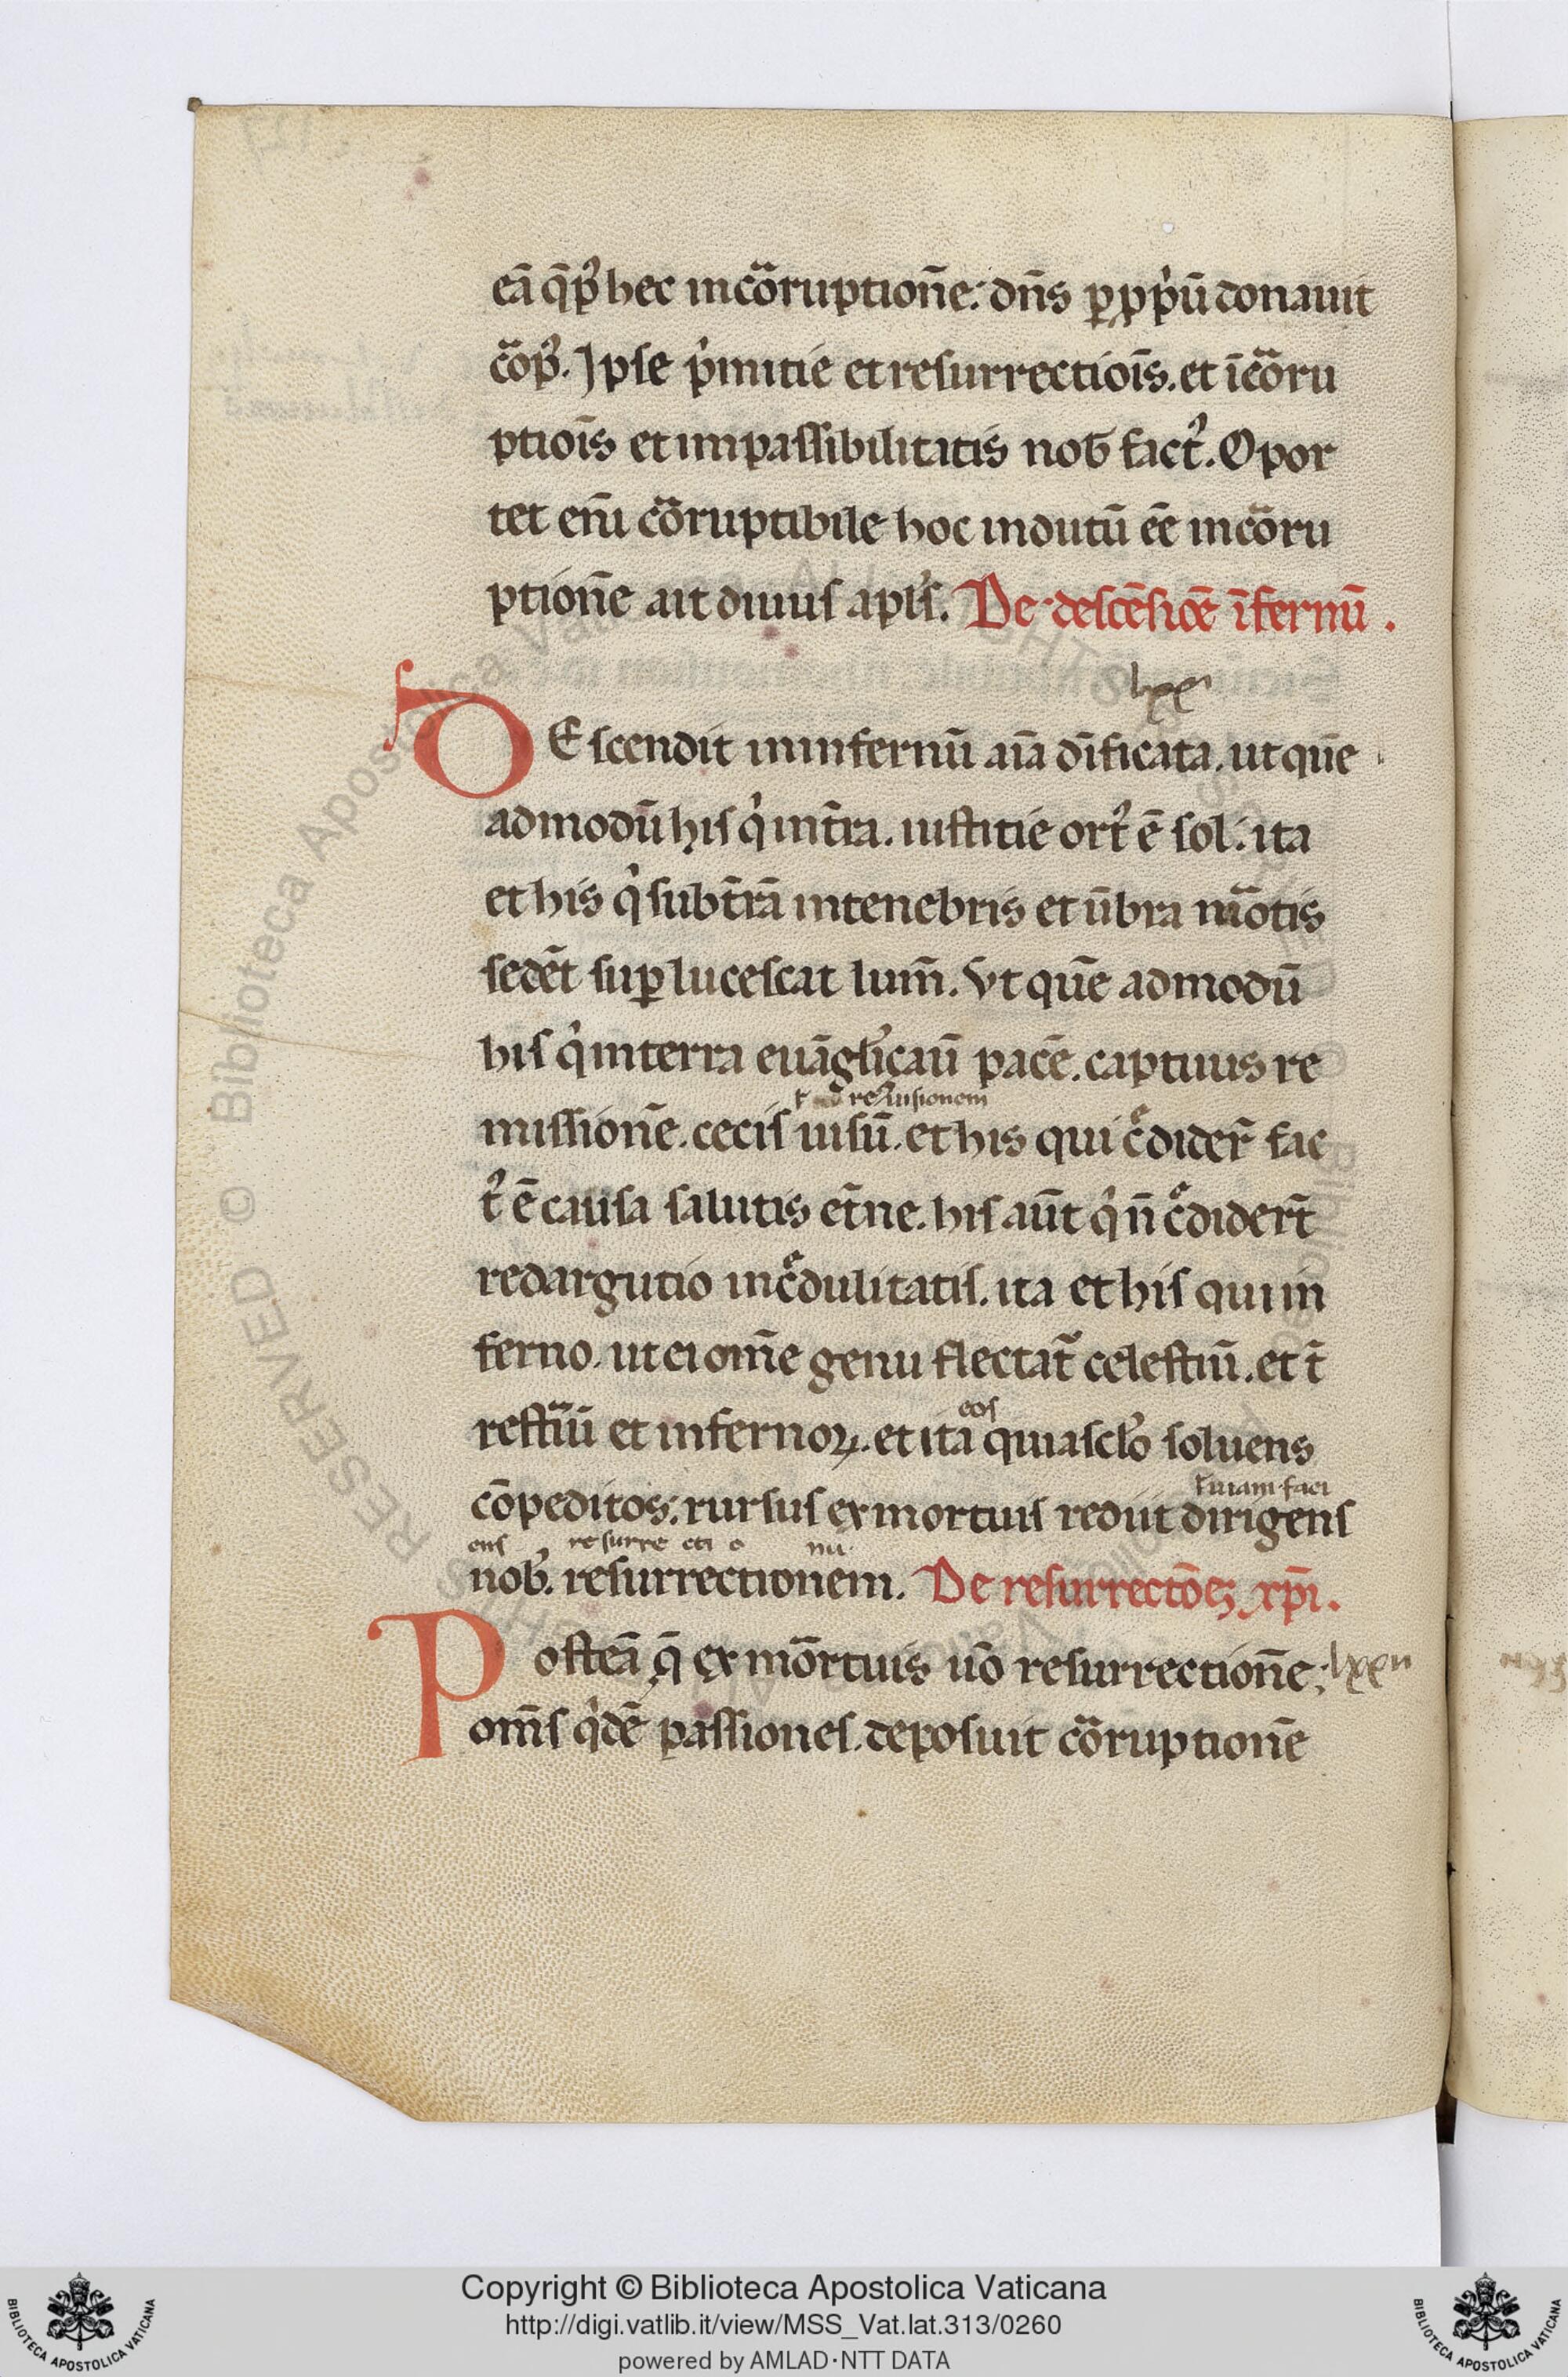 eā q̄ p̾ hec incõruptionē: dn̄s ꝑ ꝓpiū donauit
cõp̾. Ipse p̾mitie et resurrectiōis. et īcõru
ptiōis et impassibilitatis nob̄ fact̾. Opor
tet enī cõruptibile hoc indutū ēē incõru
ptionē ait diuus apl̄s. De descēsiōē ī fernū.
lxxi
DEscendit in infernū aīa dīficata. ut quē
admodū his q̾ in t̄ra. iustitie ort̾ ē sol: ita
et his q̾ sub t̄rā in tenebris et ūbra mõtis
sedēt suꝑ lucescat lum̄. Vt quē admodū
his q̾ in terra euāgl̾icauī pacē. captiuus re
reclusionem
missionē. cecis uisū. et his qui c̾dider̄ fac
t̾ ē causa salutis et̄ne. his aūt q̾ n̄ c̾didert̄
redargutio inc̾dulitatis. ita et his qui in
ferno. ut ei om̄e genu flectat̃ celestiū. et t̄
eos
restriū et infernoꝝ. et ita qui a sclo̾ soluens
uiam faci
cōpeditos: rursus ex mortuis rediit dirigens
ens resurre cti o nu
nob̾. resurrectionem. De resurrectōēꝫ xp̄i.
Posteā q̄ ex mõrtuis uō resurrectionē: lxxii
om̄s q̾dē passiones. deposuit cõruptionē
Copyright © Biblioteca Apostolica Vaticana
http://digi.vatlib.it/view/MSS_Vat.lat.313/0260
powered by AMLAD·NTT DATA
BIBLIOTECA APOSTOLICA VATICANA
BIBLIOTECA APOSTOLICA VATICANA